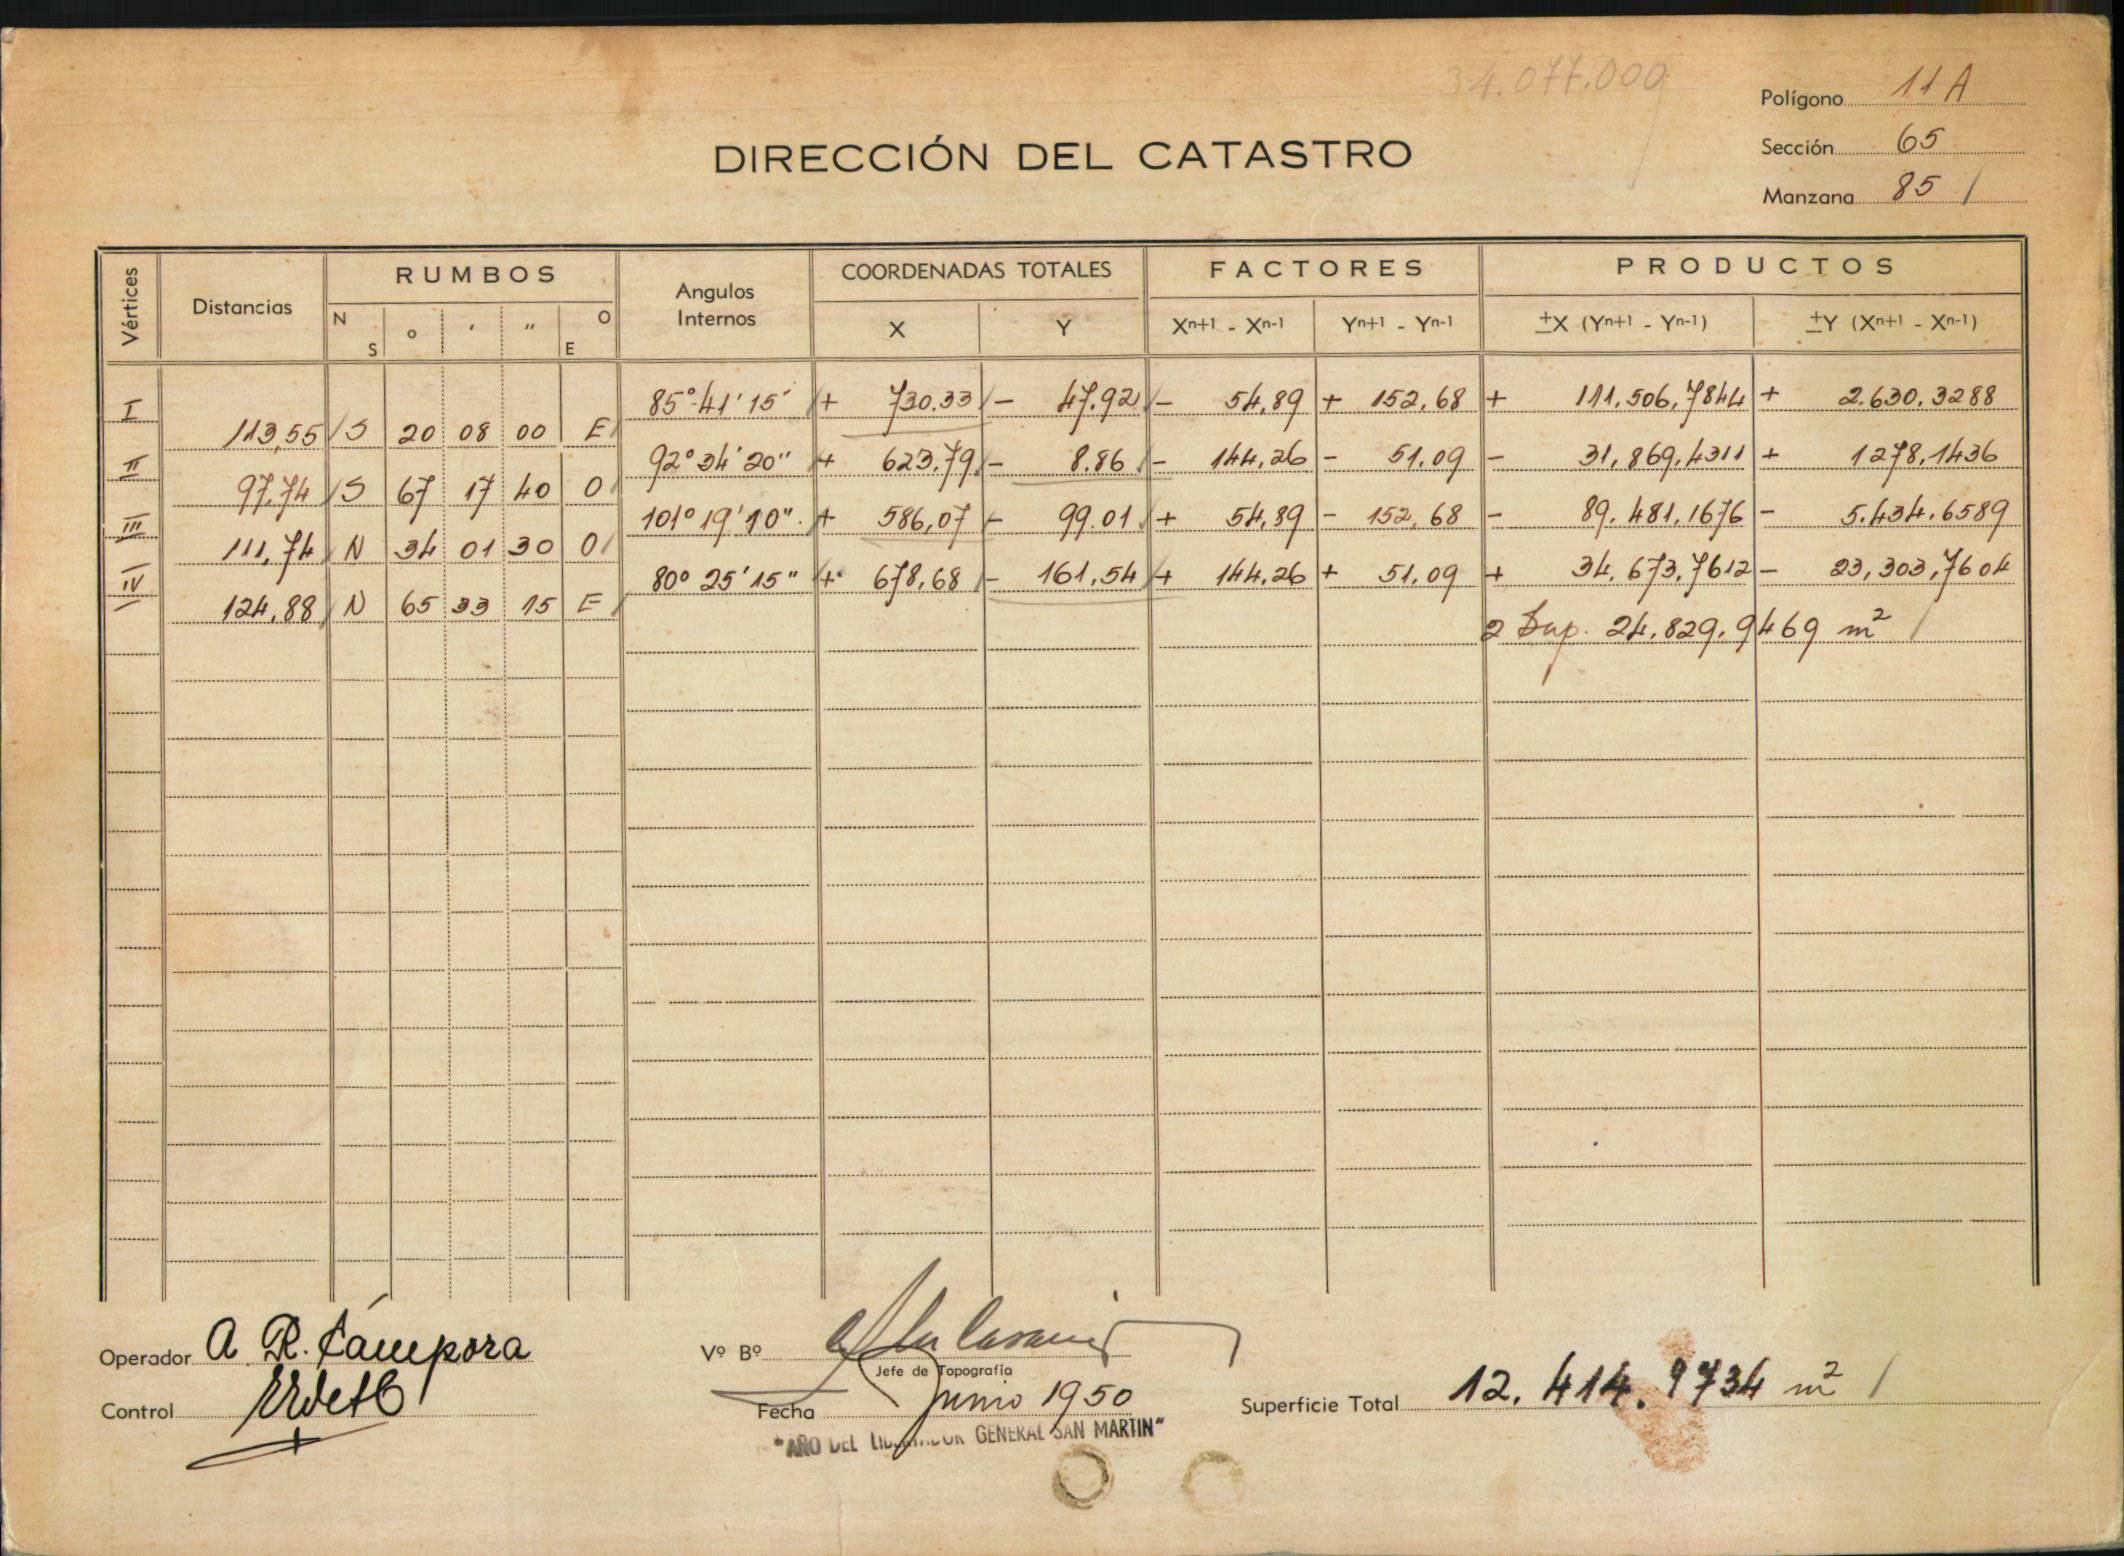 34.077.000
Polígono 11 A
DIRECCIÓN DEL CATASTRO
Sección 65
Manzana 85 /
Vértices Distancias RUMBOS Angulos Internos COORDENADAS TOTALES FACTORES PRODUCTOS
N S o ' " O E X Y Xn+1 - Xn-1 Yn+1 - Yn-1 ±X (Yn+1 - Yn-1) ±Y (Xn+1 - Xn-1)
I 85° 41' 15" + 730.33 - 47.92 - 54,89 + 152,68 + 111.506,7844 + 2.630,3288
113,55 S 20 08 00 E
II 92° 34' 20" + 623,79 - 8.86 - 144,26 - 51.09 - 31,869,4311 + 1278,1436
97,74 S 67 17 40 O
III 101° 19' 10" + 586,07 - 99.01 + 54,89 - 152,68 - 89.481,1676 - 5.434.6589
111,74 N 34 01 30 O
IV 80° 25' 15" + 678,68 - 161,54 + 144,26 + 51.09 + 34,673,7612 - 23,303,7604
124,88 N 65 33 15 E
2 Sup. 24.829,9469 m² /
Operador A. R. Cámpora
Vº Bº
Jefe de Topografía
Control
Fecha Junio 1950
Superficie Total 12.414.9734 m² /
"AÑO DEL LIBERTADOR GENERAL SAN MARTIN"